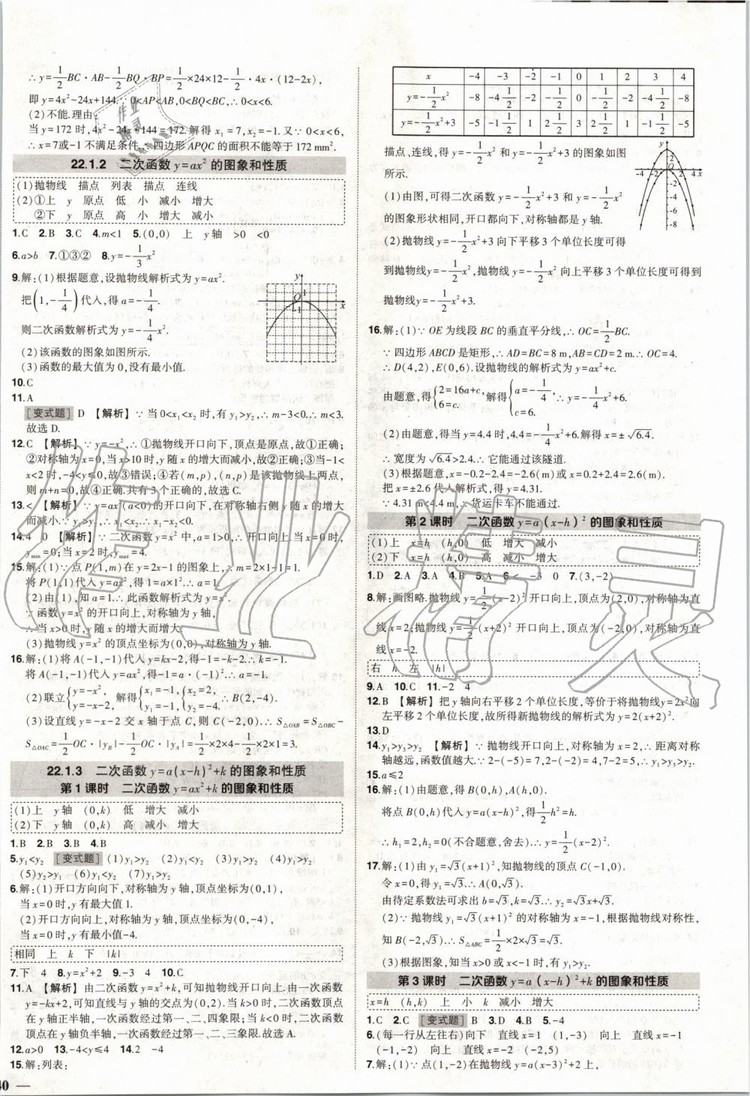 ∴y=1/2BC·AB-1/2BQ·BP=1/2×24×12-1/2·4x·(12-2x),
即 y=4x²-24x+144.∵0<AP<AB,0<BQ<BC,∴0<x<6.
(2)不能.理由:
当 y=172 时,4x²-24x+144=172.解得 x₁=7,x₂=-1.又∵0<x<6,
∴x=7或-1 不满足条件,∴四边形APQC的面积不能等于172 mm².
22.1.2 二次函数y=ax²的图象和性质
(1)抛物线 描点 列表 描点 连线
(2)①上 y 原点 低 小 减小 增大
②下 y 原点 高 小 增大 减小
1.C 2.B 3.C 4.m<1 5.(0,0) 上 y轴 >0 <0
6.a>b 7.①③② 8.y=-1/3x²
9.解:(1)根据题意,设抛物线解析式为y=ax²,
把(1,-1/4)代入,得a=-1/4.
则二次函数解析式为y=-1/4x².
(2)该函数的图象如图所示.
(3)函数的最大值为0,没有最小值.
10.C
11.A
[变式题] D 【解析】∵当0<x₁<x₂时,有y₁>y₂,∴m-3<0.∴m<3.
故选D.
12.C 【解析】∵y=-x²,∴①抛物线开口向下,顶点是原点,故①正确;
②对称轴为x=0,当x>10时,y随x的增大而减小,故②正确;③当-1<
x<2时,-4<y≤0,故③错误;④若(m,p),(n,p)是该抛物线上两点,
则m+n=0,故④正确.其中正确的共有3个.故选C.
13.< 【解析】∵抛物线y=ax²(a<0)的开口向下,在对称轴右侧y随x的增大
而减小∵y₁>y₂,∴x₁<x₂.∴x₁-x₂<0.
14.4 0 【解析】∵二次函数y=x²中,a=1>0,∴开口向上.当x=0时,
y最小=0;当x=2时,y最大=4.
15.解:(1)∵点P(1,m)在y=2x-1的图象上,∴m=2×1-1=1.
将P(1,1)代入y=ax²,得1=a×1².∴a=1.
(2)由(1),知a=1.∴二次函数的解析式为y=x².
∵函数y=x²的开口向上,对称轴为y轴,
∴当x>0时,y随x的增大而增大
(3)抛物线y=x²的顶点坐标为(0,0),对称轴为y轴.
16.解:(1)将A(-1,-1)代入y=kx-2,得-1=-k-2.∴k=-1.
将A(-1,-1)代入y=ax²,得-1=a·(-1)².∴a=-1.
(2)联立{y=-x², y=-x-2. 解得{x₁=-1, y₁=-1, {x₂=2, y₂=-4. ∴B(2,-4).
(3)设直线y=-x-2交x轴于点C,则C(-2,0).∴S△OAB=S△OBC-
S△OAC=1/2OC·|yB|-1/2OC·|yA|=1/2×2×4-1/2×2×1=3.
22.1.3 二次函数y=a(x-h)²+k的图象和性质
第1课时 二次函数y=ax²+k的图象和性质
(1)上 y轴 (0,k) 低 增大 减小
(2)下 y轴 (0,k) 高 减小 增大
1.B 2.A 3.B 4.B
5.y₁<y₂ [变式题] (1)y₁>y₂ (2)y₁<y₂ (3)y₁>y₂ (4)y₁>y₂
(5)y₂>y₁ (6)y₁<y₂ (7)y₁>y₂
6.解:(1)开口方向向下,对称轴为y轴,顶点坐标为(0,1),
当x=0时,y有最大值1.
(2)开口方向向上,对称轴为y轴,顶点坐标为(0,-4),
当x=0时,y有最小值-4.
相同 上 k 下 |k|
7.下 4 8.y=x²+2 9.-3 4 10.C
11.A 【解析】由二次函数y=x²+k,可知抛物线开口向上.由一次函数
y=x+k,可知直线与y轴的交点为(0,k).当k>0时,二次函数顶点
在y轴正半轴,一次函数经过第一、二、四象限;当k<0时,二次函数
顶点在y轴负半轴,一次函数经过第一、二、三象限.故选A.
12.a>0 13.-4<y≤4 14.2 -4
15.解:列表:
40
x -4 -3 -2 -1 0 1 2 3 4
y=-1/2x² -8 -9/2 -2 -1/2 0 -1/2 -2 -9/2 -8
y=-1/2x²+3 -5 -3/2 1 5/2 3 5/2 1 -3/2 -5
描点、连线,得y=-1/2x²和y=-1/2x²+3的图象如图
所示.
(1)由图,可得二次函数y=-1/2x²和y=-1/2x²+3
的图象形状相同,开口都向下,对称轴都是y轴.
(2)抛物线y=-1/2x²+3向下平移3个单位长度可得
到抛物线y=-1/2x²,抛物线y=-1/2x²向上平移3个单位长度可得到
抛物线y=-1/2x²+3.
16.解:(1)∵OE为线段BC的垂直平分线,∴OC=1/2BC.
∵四边形ABCD是矩形,∴AD=BC=8 m,AB=CD=2 m.∴OC=4.
∴D(4,2),E(0,6).设抛物线的解析式为y=ax²+c.
由题意,得{2=16a+c, 6=c. 解得{a=-1/4, c=6. ∴y=-1/4x²+6.
(2)由题意,得当y=4.4时,4.4=-1/4x²+6.解得x=±√6.4.
∴宽度为√6.4>2.4.∴它能通过该隧道.
(3)根据题意,得x=-0.2-2.4=-2.6(m)或x=0.2+2.4=2.6(m).
把x=±2.6代入解析式,得y=4.31.
∵4.31<4.4 m,∴货运卡车不能通过.
第2课时 二次函数y=a(x-h)²的图象和性质
(1)上 x=h (h,0) 低 增大 减小
(2)下 x=h (h,0) 高 减小 增大
1.D 2.A 3.B 4.B 5.A 6.< -3 0 7.(3,-2)
8.解:画图略.抛物线y=1/2(x-2)²开口向上,顶点为(2,0),对称轴为直
线x=2;抛物线y=-1/2(x+2)²开口向下,顶点为(-2,0),对称轴为直
线x=-2.
右 h 左 |h|
9.A 10.C 11.-2 4
12.B 【解析】把y轴向右平移2个单位长度,等价于将抛物线y=2x²向
左平移2个单位长度,故所得新抛物线的解析式为y=2(x+2)².
13.D
14.y₁>y₃>y₂ 【解析】∵抛物线开口向上,对称轴为x=-2,∴距离对称
轴越远,函数值越大.∵2-(-5)=7,2-(-2)=4,7-2=5,∴y₁>y₃>y₂.
15.a≤2
16.解:(1)∵抛物线y=1/2(x-h)²的顶点为A,∴A(h,0).
将点B(0,h)代入y=1/2(x-h)²,得1/2h²=h.
∴h₁=2,h₂=0(不合题意,舍去).∴y=1/2(x-2)².
17.解:(1)由y₁=√3(x+1)²,知抛物线的顶点C(-1,0).
令x=0,得y₁=√3.∴A(0,√3).
由待定系数法可求出b=√3,k=√3.∴y₂=√3x+√3.
(2)∵抛物线y₁=√3(x+1)²的对称轴为x=-1,根据抛物线对称性,
知B(-2,√3).∴S△ABC=1/2×2×√3=√3.
(3)根据图象,知当x>0或x<-1时,有y₁>y₂.
第3课时 二次函数y=a(x-h)²+k的图象和性质
x=h (h,k) 上 小 k 减小 增大
1.C 2.C [变式题] B 3.D 4.B 5.-4
6.(每一行从左往右)向下 直线x=1 (1,-1) 向上 直线x=-1
(-1,-2) 向上 直线x=-2 (-2,5)
7.解:(1)∵抛物线的顶点坐标为(-1,-2),∴